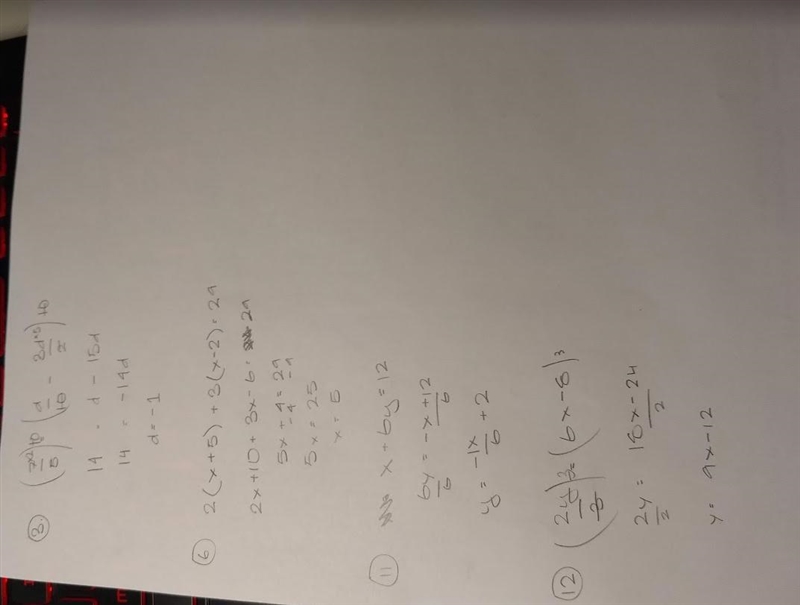 ③ (7×2/5)10 (d/10 - 3d×5/2)10
14 = d - 15d
14 = -14d
d = -1
⑥ 2(x+5) + 3(x-2) = 29
2x+10 + 3x-6 = 29
5x + 4 = 29
-4 -4
5x = 25
x = 5
⑪ x + 6y = 12
6y/6 = -x+12/6
y = -1x/6 + 2
⑫ (2y/3)3 = (6x-8)3
2y/2 = 18x-24/2
y = 9x-12